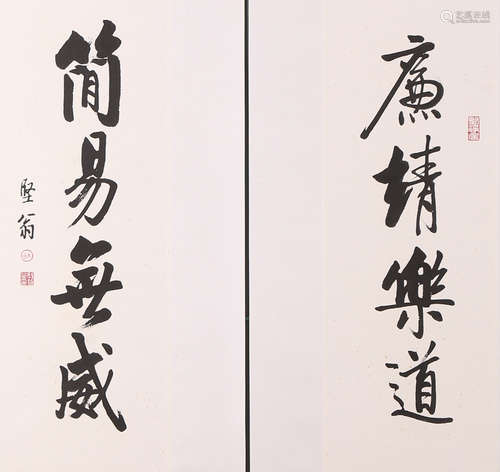 廉靖樂道
簡易無威
堅翁